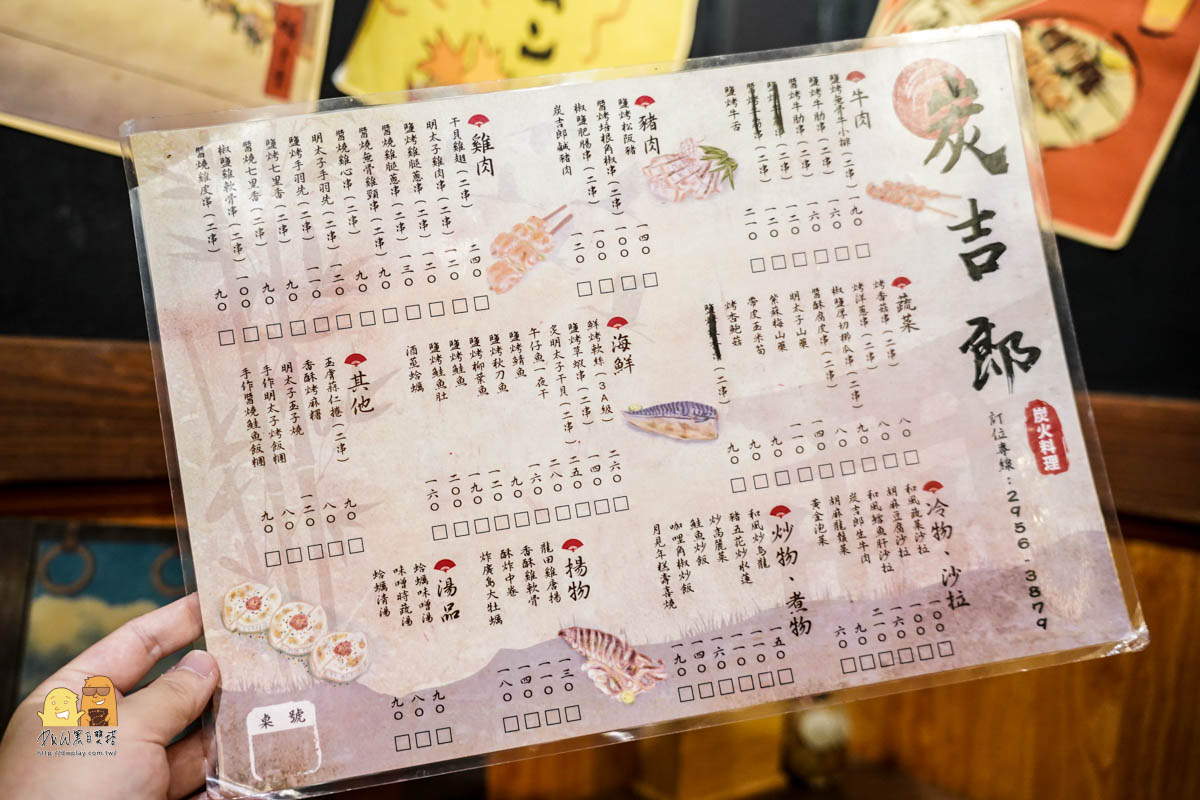 炭吉郎
炭火料理
訂位專線:2956-3879
牛肉
鹽烤無骨牛小排(二串) 一九〇
鹽烤牛肋串(二串) 一六〇
醬烤牛肋串(二串) 一六〇
(二串) 一二〇
(二串) 一二〇
鹽烤牛舌 二一〇
豬肉
鹽烤松阪豬 一四〇
鹽烤培根角椒串(二串) 一〇〇
椒鹽肥腸串(二串) 一〇〇
炭吉郎鹹豬肉 一二〇
雞肉
干貝雞翅(二串) 二四〇
明太子雞肉串(二串) 一二〇
鹽烤雞腿蔥串(二串) 一二〇
醬燒雞腿蔥串(二串) 一三〇
醬燒無骨雞頸串(二串) 九〇
醬燒雞心串(二串) 九〇
明太子手羽先(二串) 一二〇
鹽烤手羽先(二串) 一一〇
鹽烤七里香(二串) 九〇
醬燒七里香(二串) 九〇
椒鹽雞軟骨串(二串) 一〇〇
醬燒雞皮串(二串) 九〇
蔬菜
烤香菇串(二串) 八〇
烤洋蔥串(二串) 八〇
椒鹽厚切櫛瓜串(二串) 九〇
醬酥腐皮串(二串) 八〇
明太子山藥 一四〇
紫蘇梅山藥 一一〇
帶皮玉米筍 九〇
烤杏鮑菇 九〇
鹽(二串) 九〇
海鮮
鮮烤軟絲(3A級) 二六〇
鹽烤草蝦串(二串) 一四〇
炙明太子干貝(二串) 二五〇
午仔魚一夜干 二八〇
鹽烤鯖魚 一六〇
鹽烤秋刀魚 九〇
鹽烤柳葉魚 一二〇
鹽烤鮭魚 一九〇
鹽烤鮭魚肚 二〇〇
酒蒸蛤蠣 一六〇
其他
捲(二串) 九〇
香酥烤麻糬 八〇
明太子玉子燒 一二〇
手作明太子烤飯糰 八〇
手作醬燒鮭魚飯糰 九〇
冷物、沙拉
和風蔬菜沙拉 一〇〇
胡麻豆腐沙拉 一〇〇
和風鱈魚肝沙拉 一六〇
炭吉郎生牛肉 二一〇
胡麻龍鬚菜 九〇
黃金泡菜 六〇
炒物、煮物
和風炒烏龍 一五〇
豬五花炒水蓮 一二〇
炒高麗菜 一一〇
鮭魚炒飯 一六〇
咖哩角椒炒飯 一四〇
月見年糕壽喜燒 一九〇
揚物
龍田雞唐揚 一三〇
香酥雞軟骨 一一〇
酥炸中卷 一四〇
炸廣島大牡蠣 一八〇
湯品
蛤蠣味噌湯 九〇
味噌時蔬湯 八〇
蛤蠣清湯 九〇
桌號
黑白雙搭
http://dwplay.com.tw/